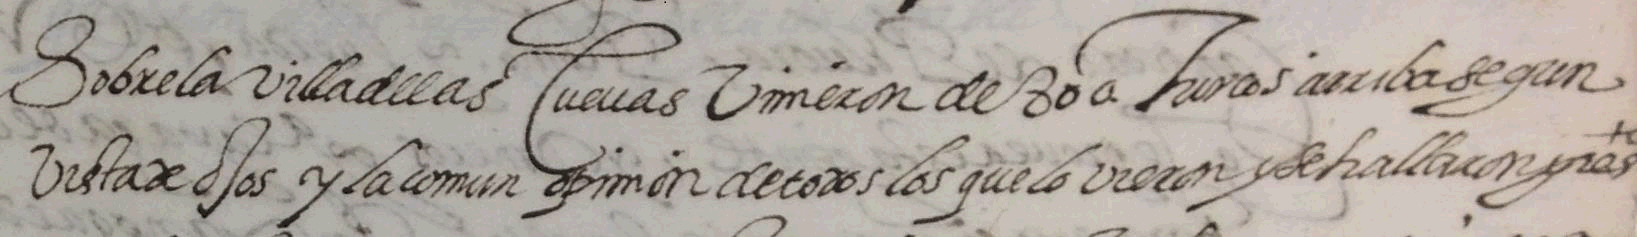 Sobre la Villa dellas Cueuas Vinieron de 800 Turcos arriba segun
Vista de ojos y la comun opinion de todos los que lo vieron y se hallaron